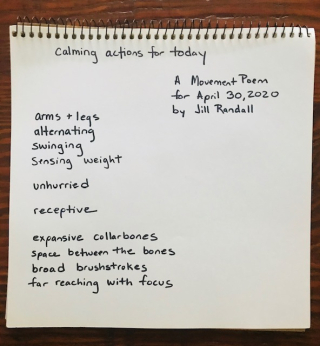 calming actions for today
A Movement Poem
for April 30, 2020
by Jill Randall
arms + legs
alternating
swinging
sensing weight
unhurried
receptive
expansive collarbones
space between the bones
broad brushstrokes
far reaching with focus